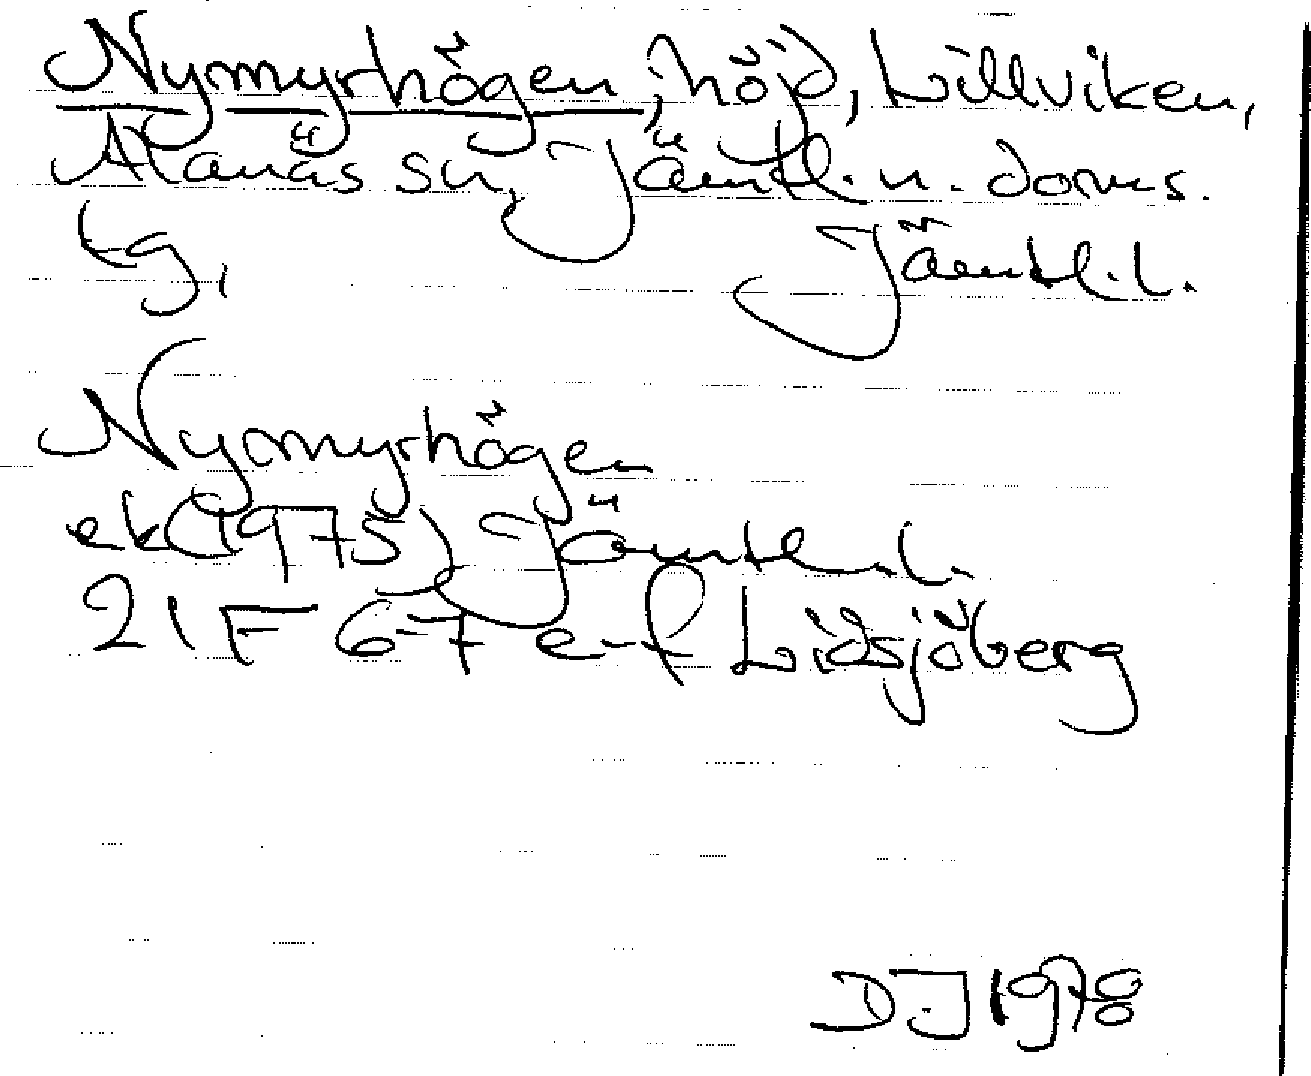 Nymyrhögen, höjd, Lillviken,
Alanäs sn, Jämtl. n. doms.
tg, Jämtl. l.
Nymyrhögen
ek (1975) Jämtl. l.
21 F 6-7 e-f Lidsjöberg
DJ 1978